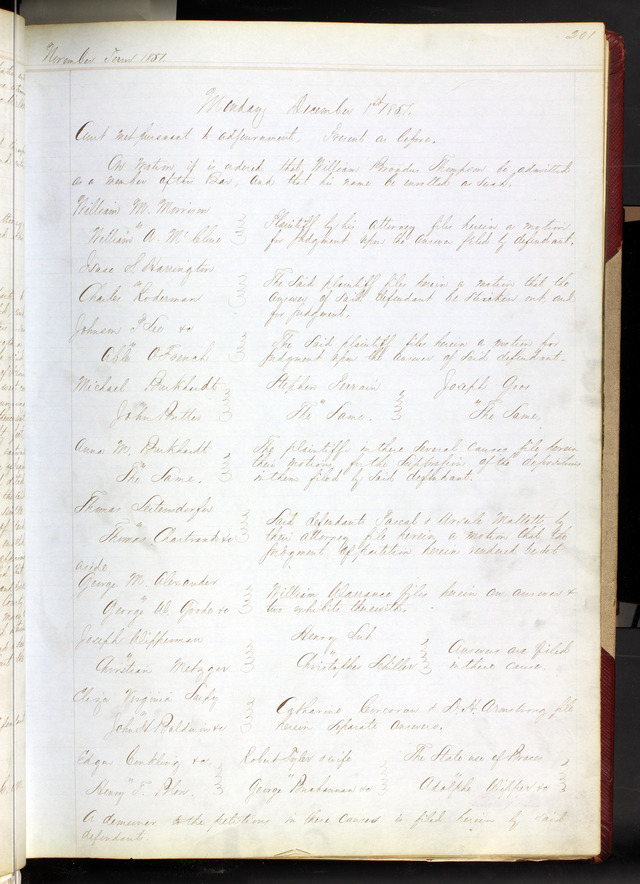 201
November Term 1851.
Monday December 1st 1851.
Court met pursuant to adjournment. Present as before.
On motion it is ordered that William Broadus Thompson be admitted
as a member of this Bar, and that his name be enrolled as such.
William M. Morrison
vs
William A. McClure
Plaintiff by his attorney files herein a motion
for judgment upon the answer filed by defendant.
Isaac S. Harrington
vs
Charles Koderman
The said plaintiff files herein a motion that the
answer of said defendant be stricken out, and
for judgment.
Johnson &c
vs
French
The said plaintiff files herein a motion for
judgment upon the answer of said defendant.
Michael Burkhardt
vs
John Butter
Stephen
vs
The Same.
Joseph
vs
The Same.
Anna M. Burkhardt
vs
The Same.
The plaintiffs in these several causes file herein
their motions for the suppression of the depositions
in them filed by said defendant.
Thomas
vs
Thomas Chartrand &c
Said defendants Pascal & Mallette, by
their attorney file herein a motion that the
judgment of partition herein rendered be set
aside.
George M. Alexander
vs
George W. Goode &c
William files herein an answer &
two exhibits therewith.
Joseph Klipperman
vs
Christian Metzger
Henry
vs
Christopher Schiller
Answers are filed
in these cause.
Eliza Virginia
vs
John H. Baldwin &c
Catharine Corcoran & D. H. Armstrong file
herein separate answers.
Edgar Conkling &c
vs
Henry T. Blow.
Robert Tyler & wife
vs
George Buchannan &c
The State use of
vs
Adolphe &c
A demurrer to the petitions in these causes is filed herein by said
defendants.